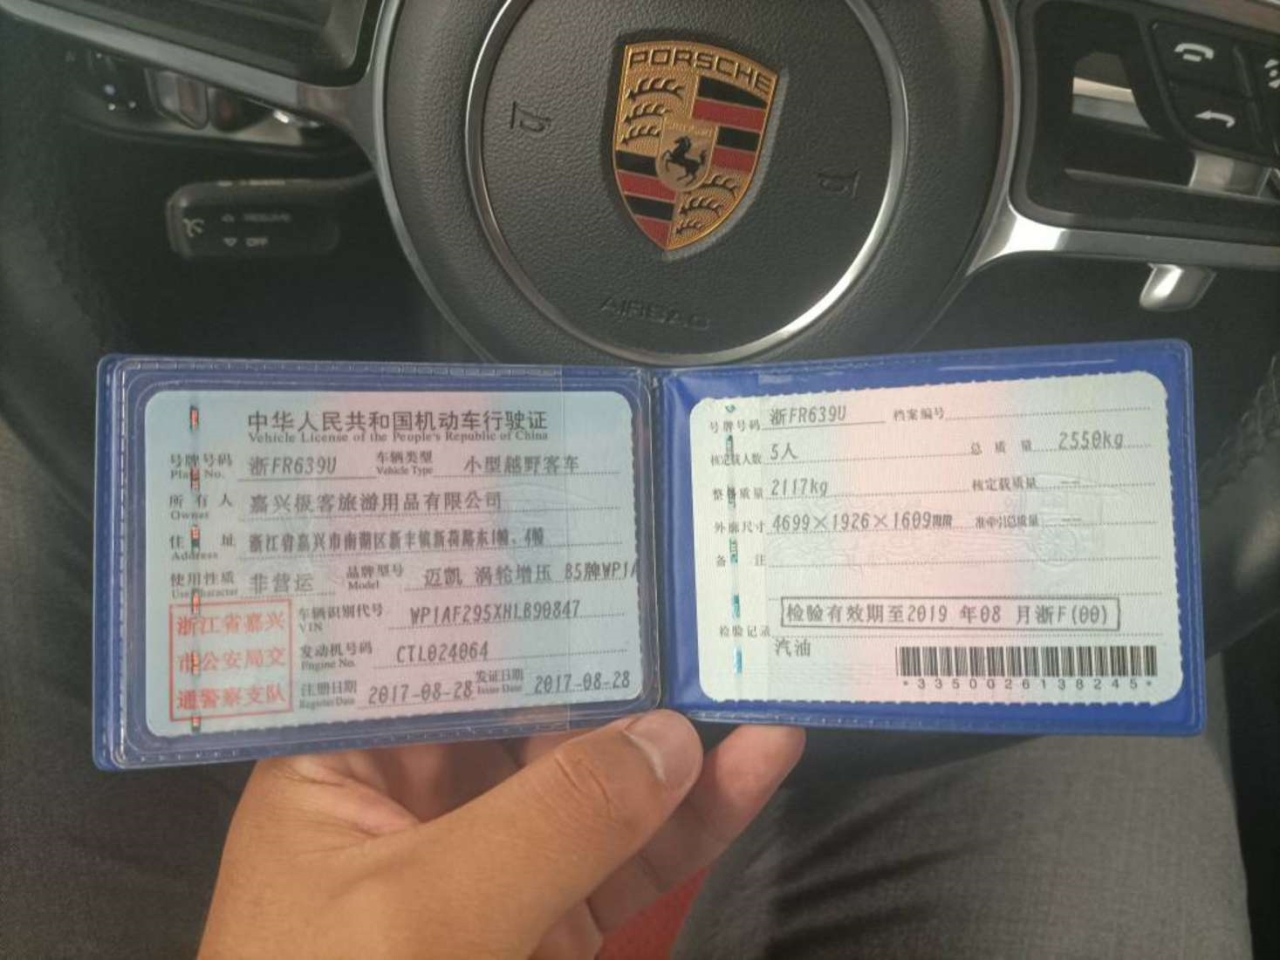 PORSCHE
AIRBAG
OFF
中华人民共和国机动车行驶证
Vehicle License of the People's Republic of China
号牌号码 浙FR639U 车辆类型 小型越野客车
Plate No. Vehicle Type
所有人 嘉兴极客旅游用品有限公司
Owner
住址 浙江省嘉兴市南湖区新丰镇新荷路东1幢、4幢
Address
使用性质 非营运 品牌型号 迈凯 涡轮增压 85牌WP1A
Use Character Model
浙江省嘉兴
市公安局交
通警察支队
车辆识别代号 WP1AF295XHLB90847
VIN
发动机号码 CTL024064
Engine No.
注册日期 2017-08-28 发证日期 2017-08-28
Register Date Issue Date
号牌号码 浙FR639U 档案编号
核定载人数 5人 总质量 2550kg
整备质量 2117kg 核定载质量 --
外廓尺寸 4699×1926×1609mm 准牵引总质量 --
备注
检验有效期至2019 年08 月浙F(00)
检验记录
汽油
*3350026138245*